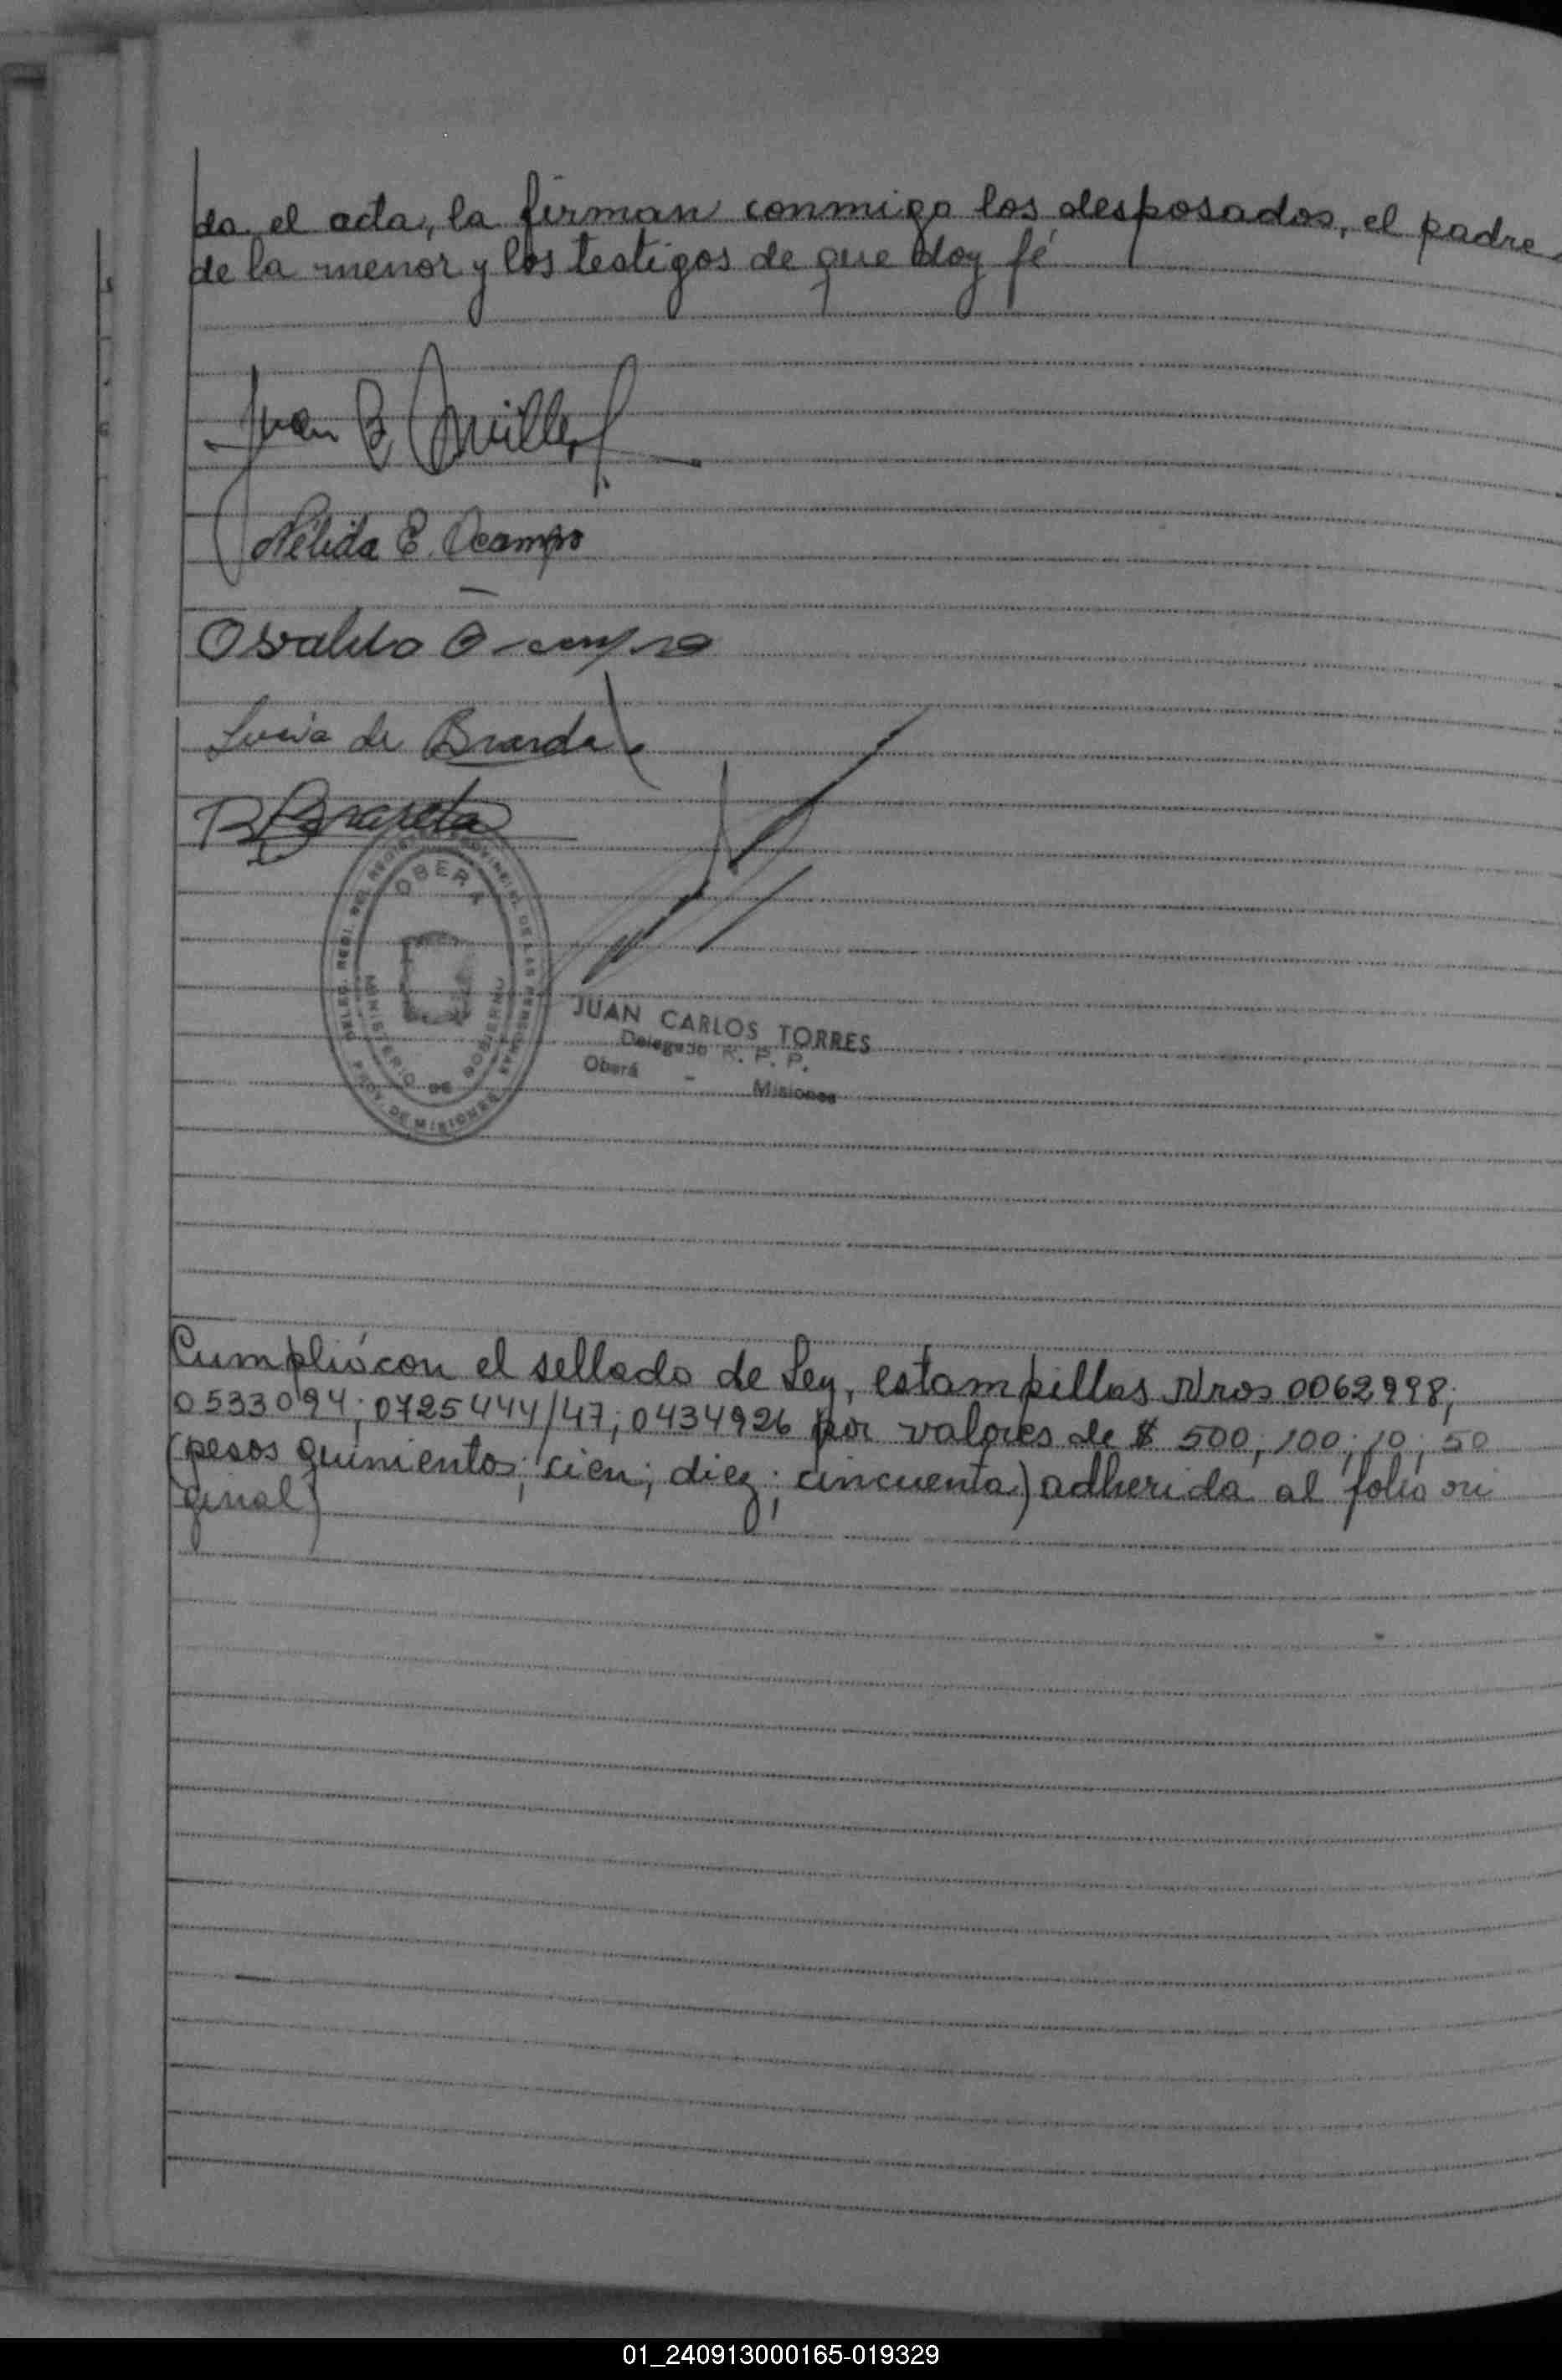 da el acta, la firman conmigo los desposados, el padre
de la menor y los testigos de que doy fé
Juan B Müller
Nélida E. Ocampo
Osvaldo Ocampo
Lucía de
OBERA
MINISTERIO DE GOBIERNO
PROV. DE MISIONES
JUAN CARLOS TORRES
Delegado R. P. P.
Oberá - Misiones
Cumplió con el sellado de Ley, estampillas Nros 0062998;
0533094; 0725444/47; 0434926 por valores de $ 500; 100; 10; 50
(pesos quinientos; cien; diez; cincuenta) adherida al folio ori
ginal)
01_240913000165-019329